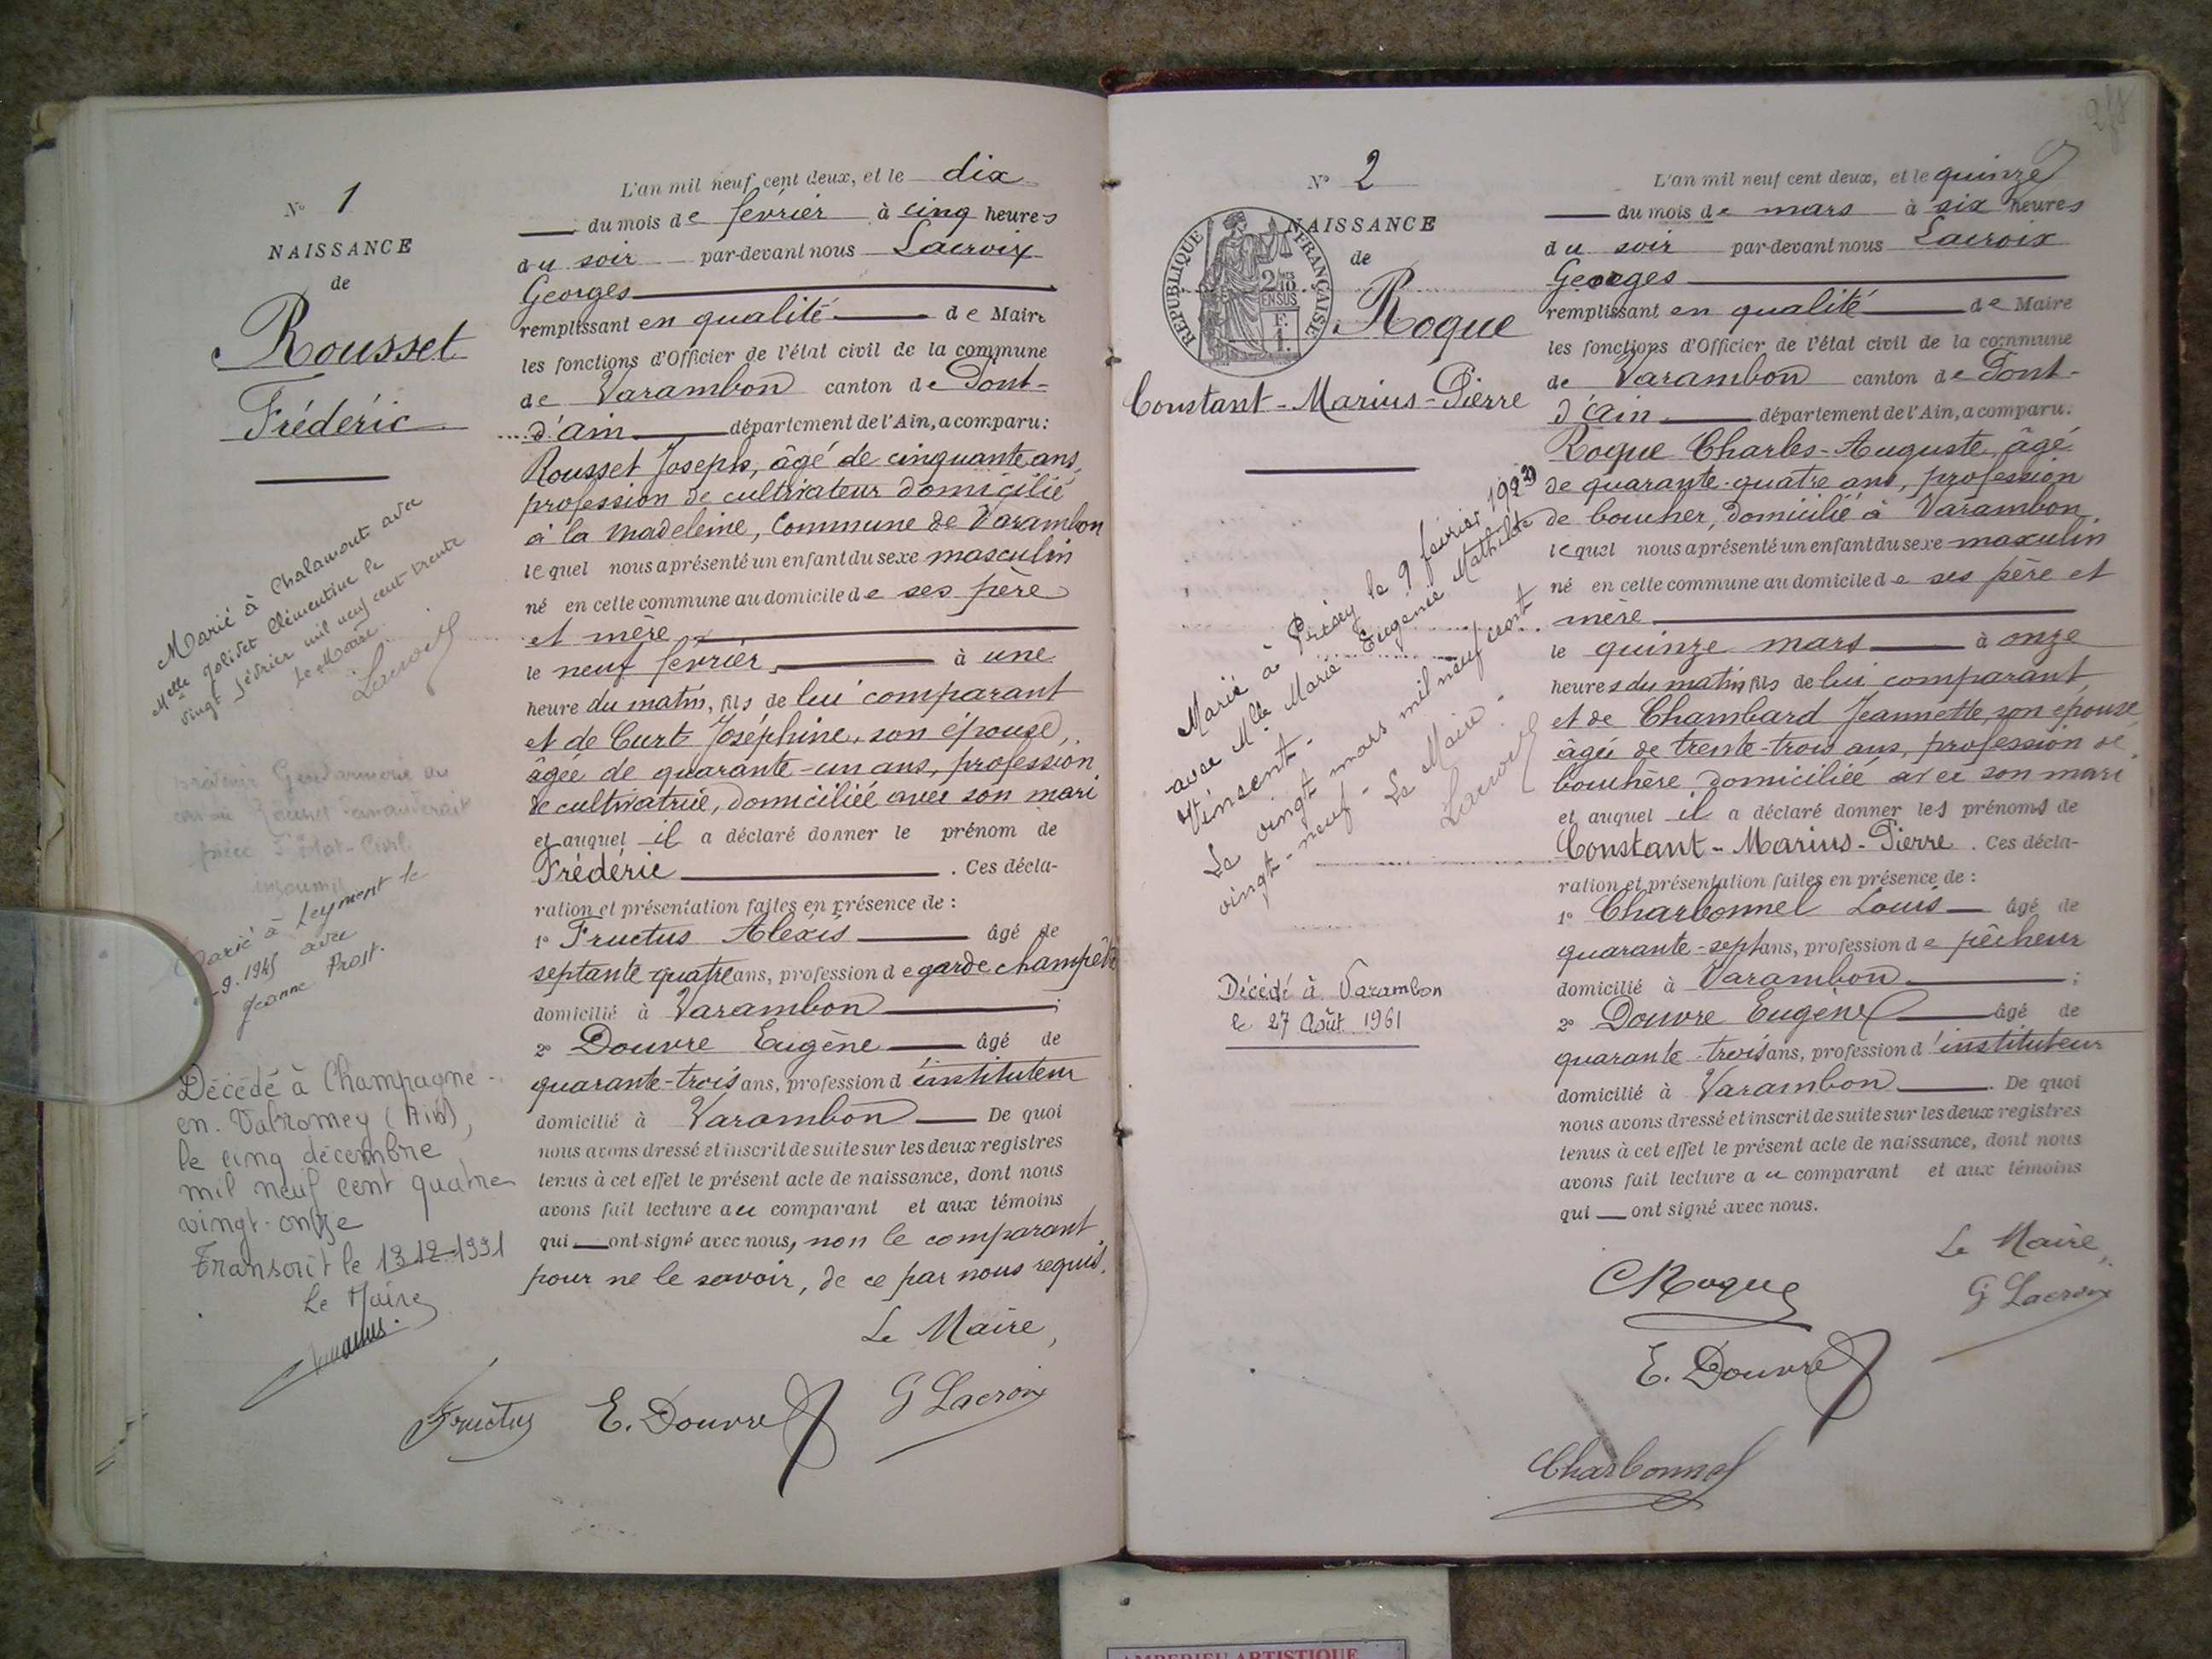 N° 1
NAISSANCE
de
Rousset
Frédéric
Marié à Chalamont avec
Melle Jolivet Clémentine le
vingt février mil neuf cent trente
Le Maire.
Lacroix
prévenir Gendarmerie au
pièce d'état-Civil
insoumis
Marié à Leyment le
-9.1945 avec
Jeanne Prost.
Décédé à Champagne-
en-Valromey (Ain),
le cinq décembre
mil neuf cent quatre
vingt-onze
Transcrit le 13-12-1991
Le Maire
L'an mil neuf cent deux, et le dix
du mois de février à cinq heures
du soir par-devant nous Lacroix
Georges
remplissant en qualité de Maire
les fonctions d'Officier de l'état civil de la commune
de Varambon canton de Pont-
d'ain département de l'Ain, a comparu:
Rousset Joseph, âgé de cinquante ans,
profession de cultivateur domicilié
à la Madeleine, Commune de Varambon
lequel nous a présenté un enfant du sexe masculin
né en cette commune au domicile de ses père
et mère
le neuf février, à une
heure du matin, fils de lui comparant
et de Curt Joséphine, son épouse,
âgée de quarante-un ans, profession
de cultivatrice, domiciliée avec son mari
et auquel il a déclaré donner le prénom de
Frédéric . Ces décla-
ration et présentation faites en présence de :
1° Fructus Alexis âgé de
septante quatre ans, profession de garde champêtre
domicilié à Varambon ;
2° Douvre Eugène âgé de
quarante-trois ans, profession d'instituteur
domicilié à Varambon De quoi
nous avons dressé et inscrit de suite sur les deux registres
tenus à cet effet le présent acte de naissance, dont nous
avons fait lecture au comparant et aux témoins
qui ont signé avec nous, non le comparant
pour ne le savoir, de ce par nous requis.
Le Maire,
Fructus E. Douvre G Lacroix
218
N° 2
NAISSANCE
de
RÉPUBLIQUE FRANÇAISE
2/10 EN SUS
F. 1.
Roque
Constant-Marius-Pierre
Marié à Prisey le 9 février 1929
avec Melle Marie Eugénie Mathilde
Vincent.
Le vingt mars mil neuf cent
vingt-neuf. Le Maire.
Lacroix
Décédé à Varambon
le 27 Août 1961
L'an mil neuf cent deux, et le quinze
du mois de mars à six heures
du soir par-devant nous Lacroix
Georges
remplissant en qualité de Maire
les fonctions d'Officier de l'état civil de la commune
de Varambon canton de Pont-
d'ain département de l'Ain, a comparu:
Roque Charles-Auguste, âgé
de quarante-quatre ans, profession
de boucher, domicilié à Varambon
lequel nous a présenté un enfant du sexe masculin
né en cette commune au domicile de ses père et
mère
le quinze mars à onze
heures du matin fils de lui comparant,
et de Chambard Jeannette, son épouse
âgée de trente-trois ans, profession de
bouchère domiciliée avec son mari
et auquel il a déclaré donner les prénoms de
Constant-Marius-Pierre . Ces décla-
ration et présentation faites en présence de :
1° Charbonnel Louis âgé de
quarante-sept ans, profession de pêcheur
domicilié à Varambon ;
2° Douvre Eugène âgé de
quarante-trois ans, profession d'instituteur
domicilié à Varambon . De quoi
nous avons dressé et inscrit de suite sur les deux registres
tenus à cet effet le présent acte de naissance, dont nous
avons fait lecture au comparant et aux témoins
qui ont signé avec nous.
Le Maire,
CRoque G Lacroix
E. Douvre
Charbonnel
AMBERIEU ARTISTIQUE